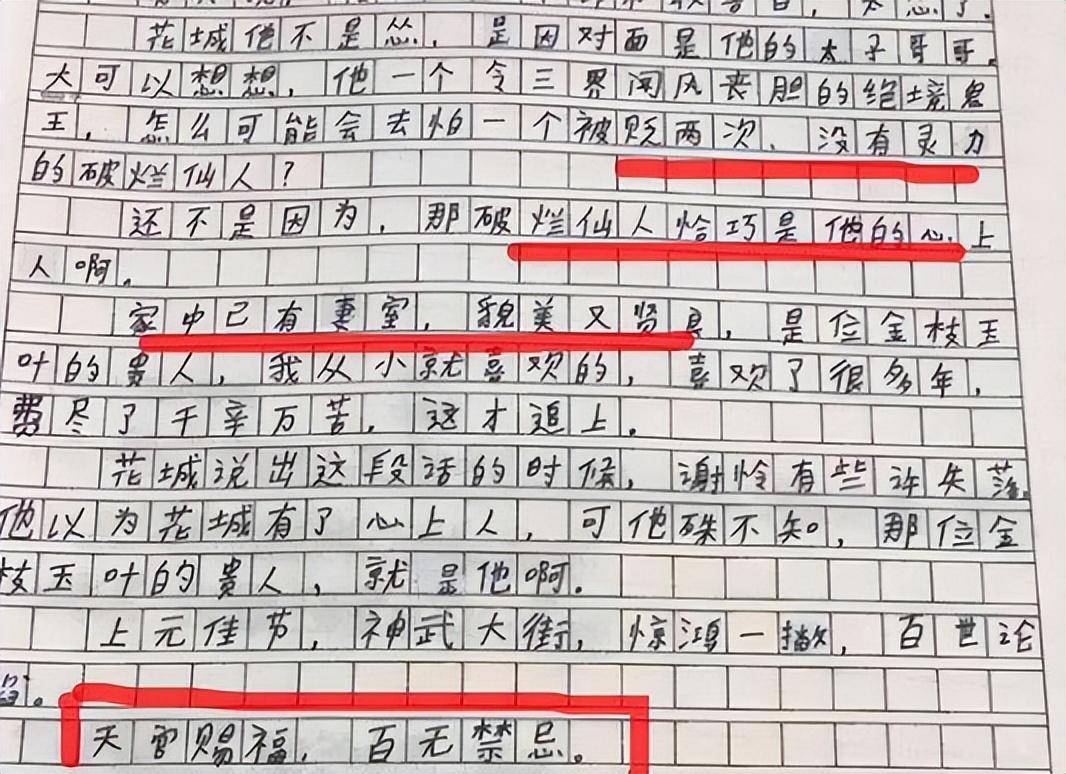 太怂了.
花城他不是怂，是因对面是他的太子哥哥。
大可以想想，他一个令三界闻风丧胆的绝境鬼
王，怎么可能会去怕一个被贬两次、没有灵力
的破烂仙人？
还不是因为，那破烂仙人恰巧是他的心上
人啊.
家中已有妻室，貌美又贤良，是位金枝玉
叶的贵人，我从小就喜欢的，喜欢了很多年，
费尽了千辛万苦，这才追上.
花城说出这段话的时候，谢怜有些许失落。
他以为花城有了心上人，可他殊不知，那位金
枝玉叶的贵人，就是他啊.
上元佳节，神武大街，惊鸿一撇，百世沦
。
天官赐福，百无禁忌。